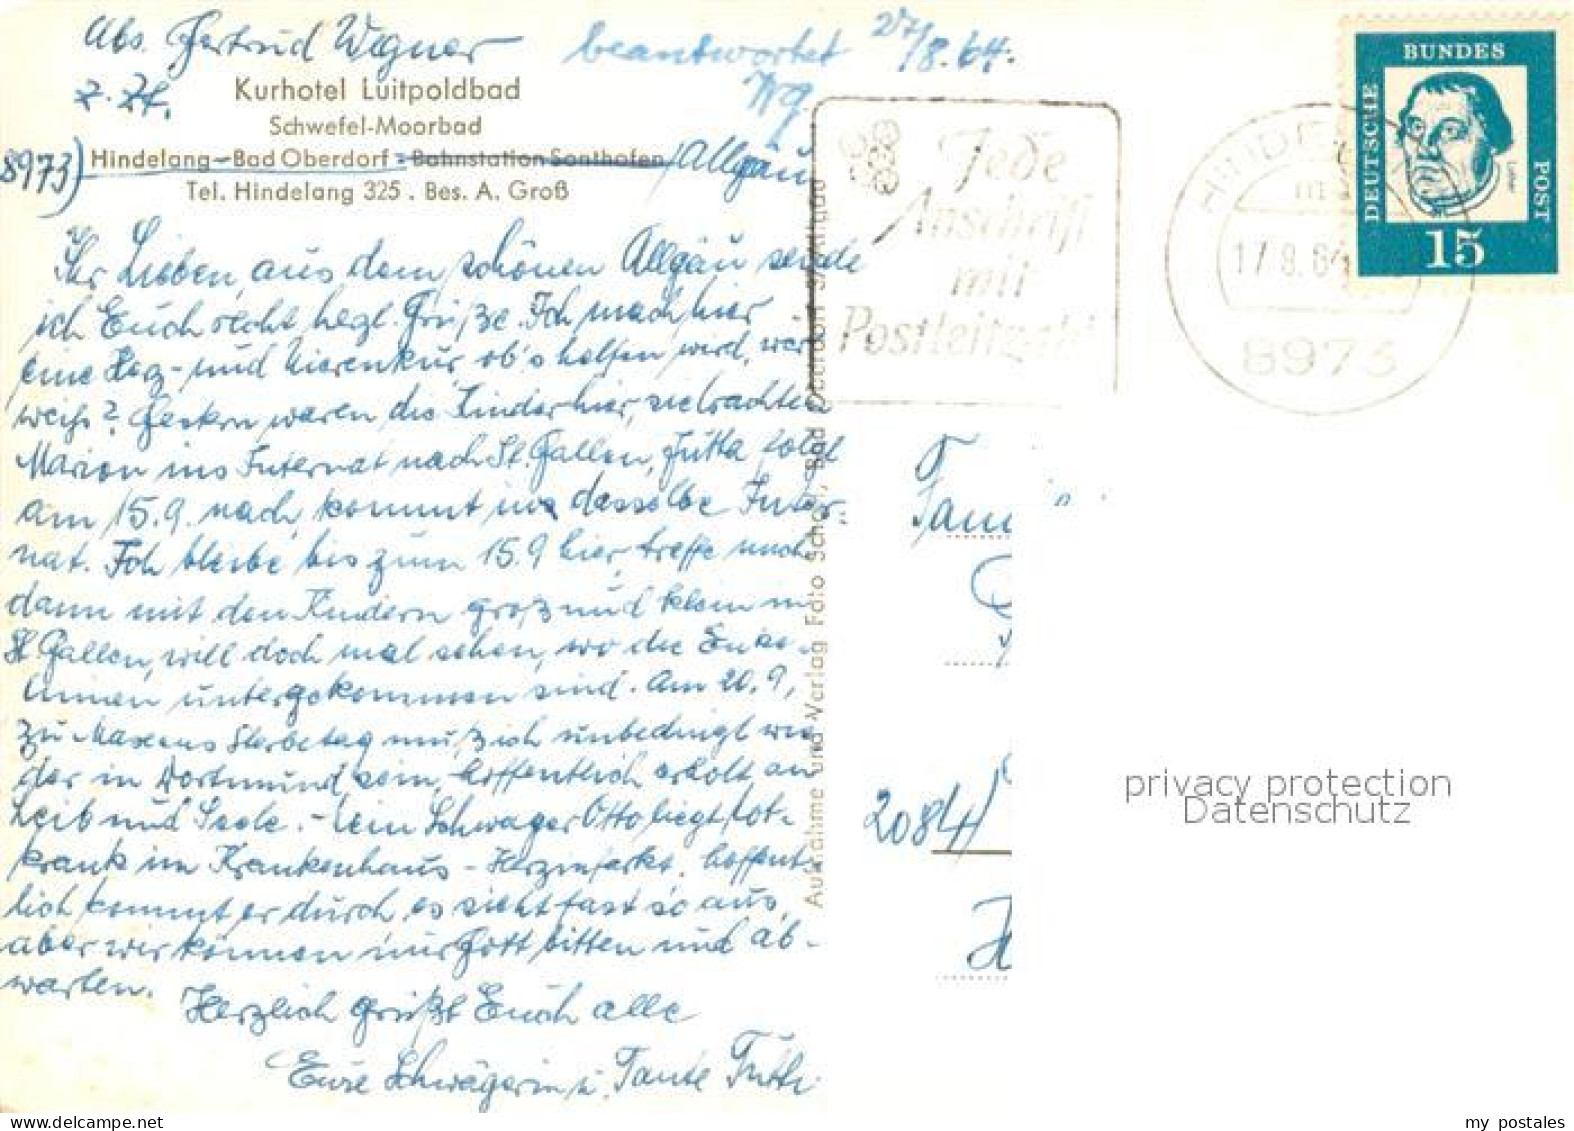 Abs. Gertrud Wegner
z. Zt.
beantwortet 27/8.64.
Wg.
Kurhotel Luitpoldbad
Schwefel-Moorbad
8973) Hindelang-Bad Oberdorf - Bahnstation Sonthofen / Allgäu
Tel. Hindelang 325 . Bes. A. Groß
Ihr Lieben, aus dem schönen Allgäu sende
ich Euch recht hzgl. Grüße. Ich mach hier
eine Herz- und Nierenkur, ob's helfen wird, wer
weiß? Gestern waren die Kinder hier, sie brachten
Marion ins Internat nach St. Gallen, Jutta folgt
am 15.9. nach, kommt ins desselbe Inter-
nat. Ich bleibe bis zum 15.9 hier, treffe mich
dann mit den Kindern groß und klein in
St. Gallen, will doch mal sehen, wo die Enke-
linnen untergekommen sind. Am 20.9,
zu Maxens Sterbetag muß ich unbedingt wie
der in Dortmund sein, hoffentlich erholt an
Leib und Seele. - Mein Schwager Otto liegt tot-
krank im Krankenhaus - Herzinfarkt, hoffent-
lich kommt er durch, es sieht fast so aus,
aber wir können nur Gott bitten und ab-
warten.
Herzlich grüßt Euch alle
Eure Schwägerin u. Tante
Aufnahme und Verlag Foto Scholl, Bad Oberdorf 9/Allgäu
Jede
Anschrift
mit
Postleitzahl
HINDEL
17.8.64
8973
BUNDES
DEUTSCHE
POST
Luther
15
Fam
2084)
H
privacy protection
Datenschutz
my postales